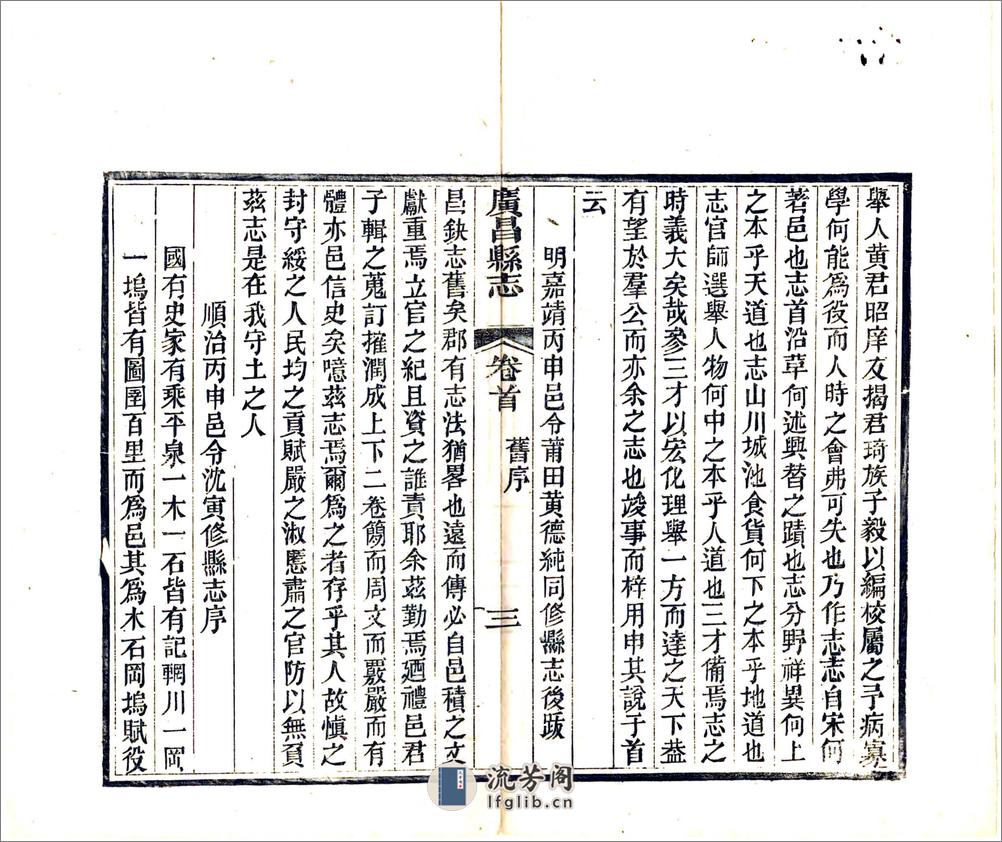 舉人黄君昭庠友揭君琦族子毅以編校屬之予病寡
學何能爲役而人時之會弗可失也乃作志志自宋何
著邑也志首沿革何述興替之蹟也志分野祥異何上
之本乎天道也志山川城池食貨何下之本乎地道也
志官師選舉人物何中之本乎人道也三才備焉志之
時義大矣哉參三才以宏化理舉一方而達之天下葢
有望於羣公而亦余之志也竣事而梓用申其說于首
云
明嘉靖丙申邑令莆田黄德純同修縣志後跋
廣昌縣志
卷首
舊序
三
昌缺志舊矣郡有志法猶畧也遠而傳必自邑積之文
獻重焉立官之紀且資之誰責耶余茲勤焉廼禮邑君
子輯之蒐訂摧潤成上下二卷簡而周文而覈嚴而有
體亦邑信史矣噫茲志焉爾爲之者存乎其人故慎之
封守綏之人民均之貢賦嚴之淑慝肅之官防以無負
茲志是在我守土之人
順治丙申邑令沈寅修縣志序
國有史家有乘平泉一木一石皆有記輞川一岡
一塢皆有圖圉百里而爲邑其爲木石岡塢賦役
流芳阁
lfglib.cn